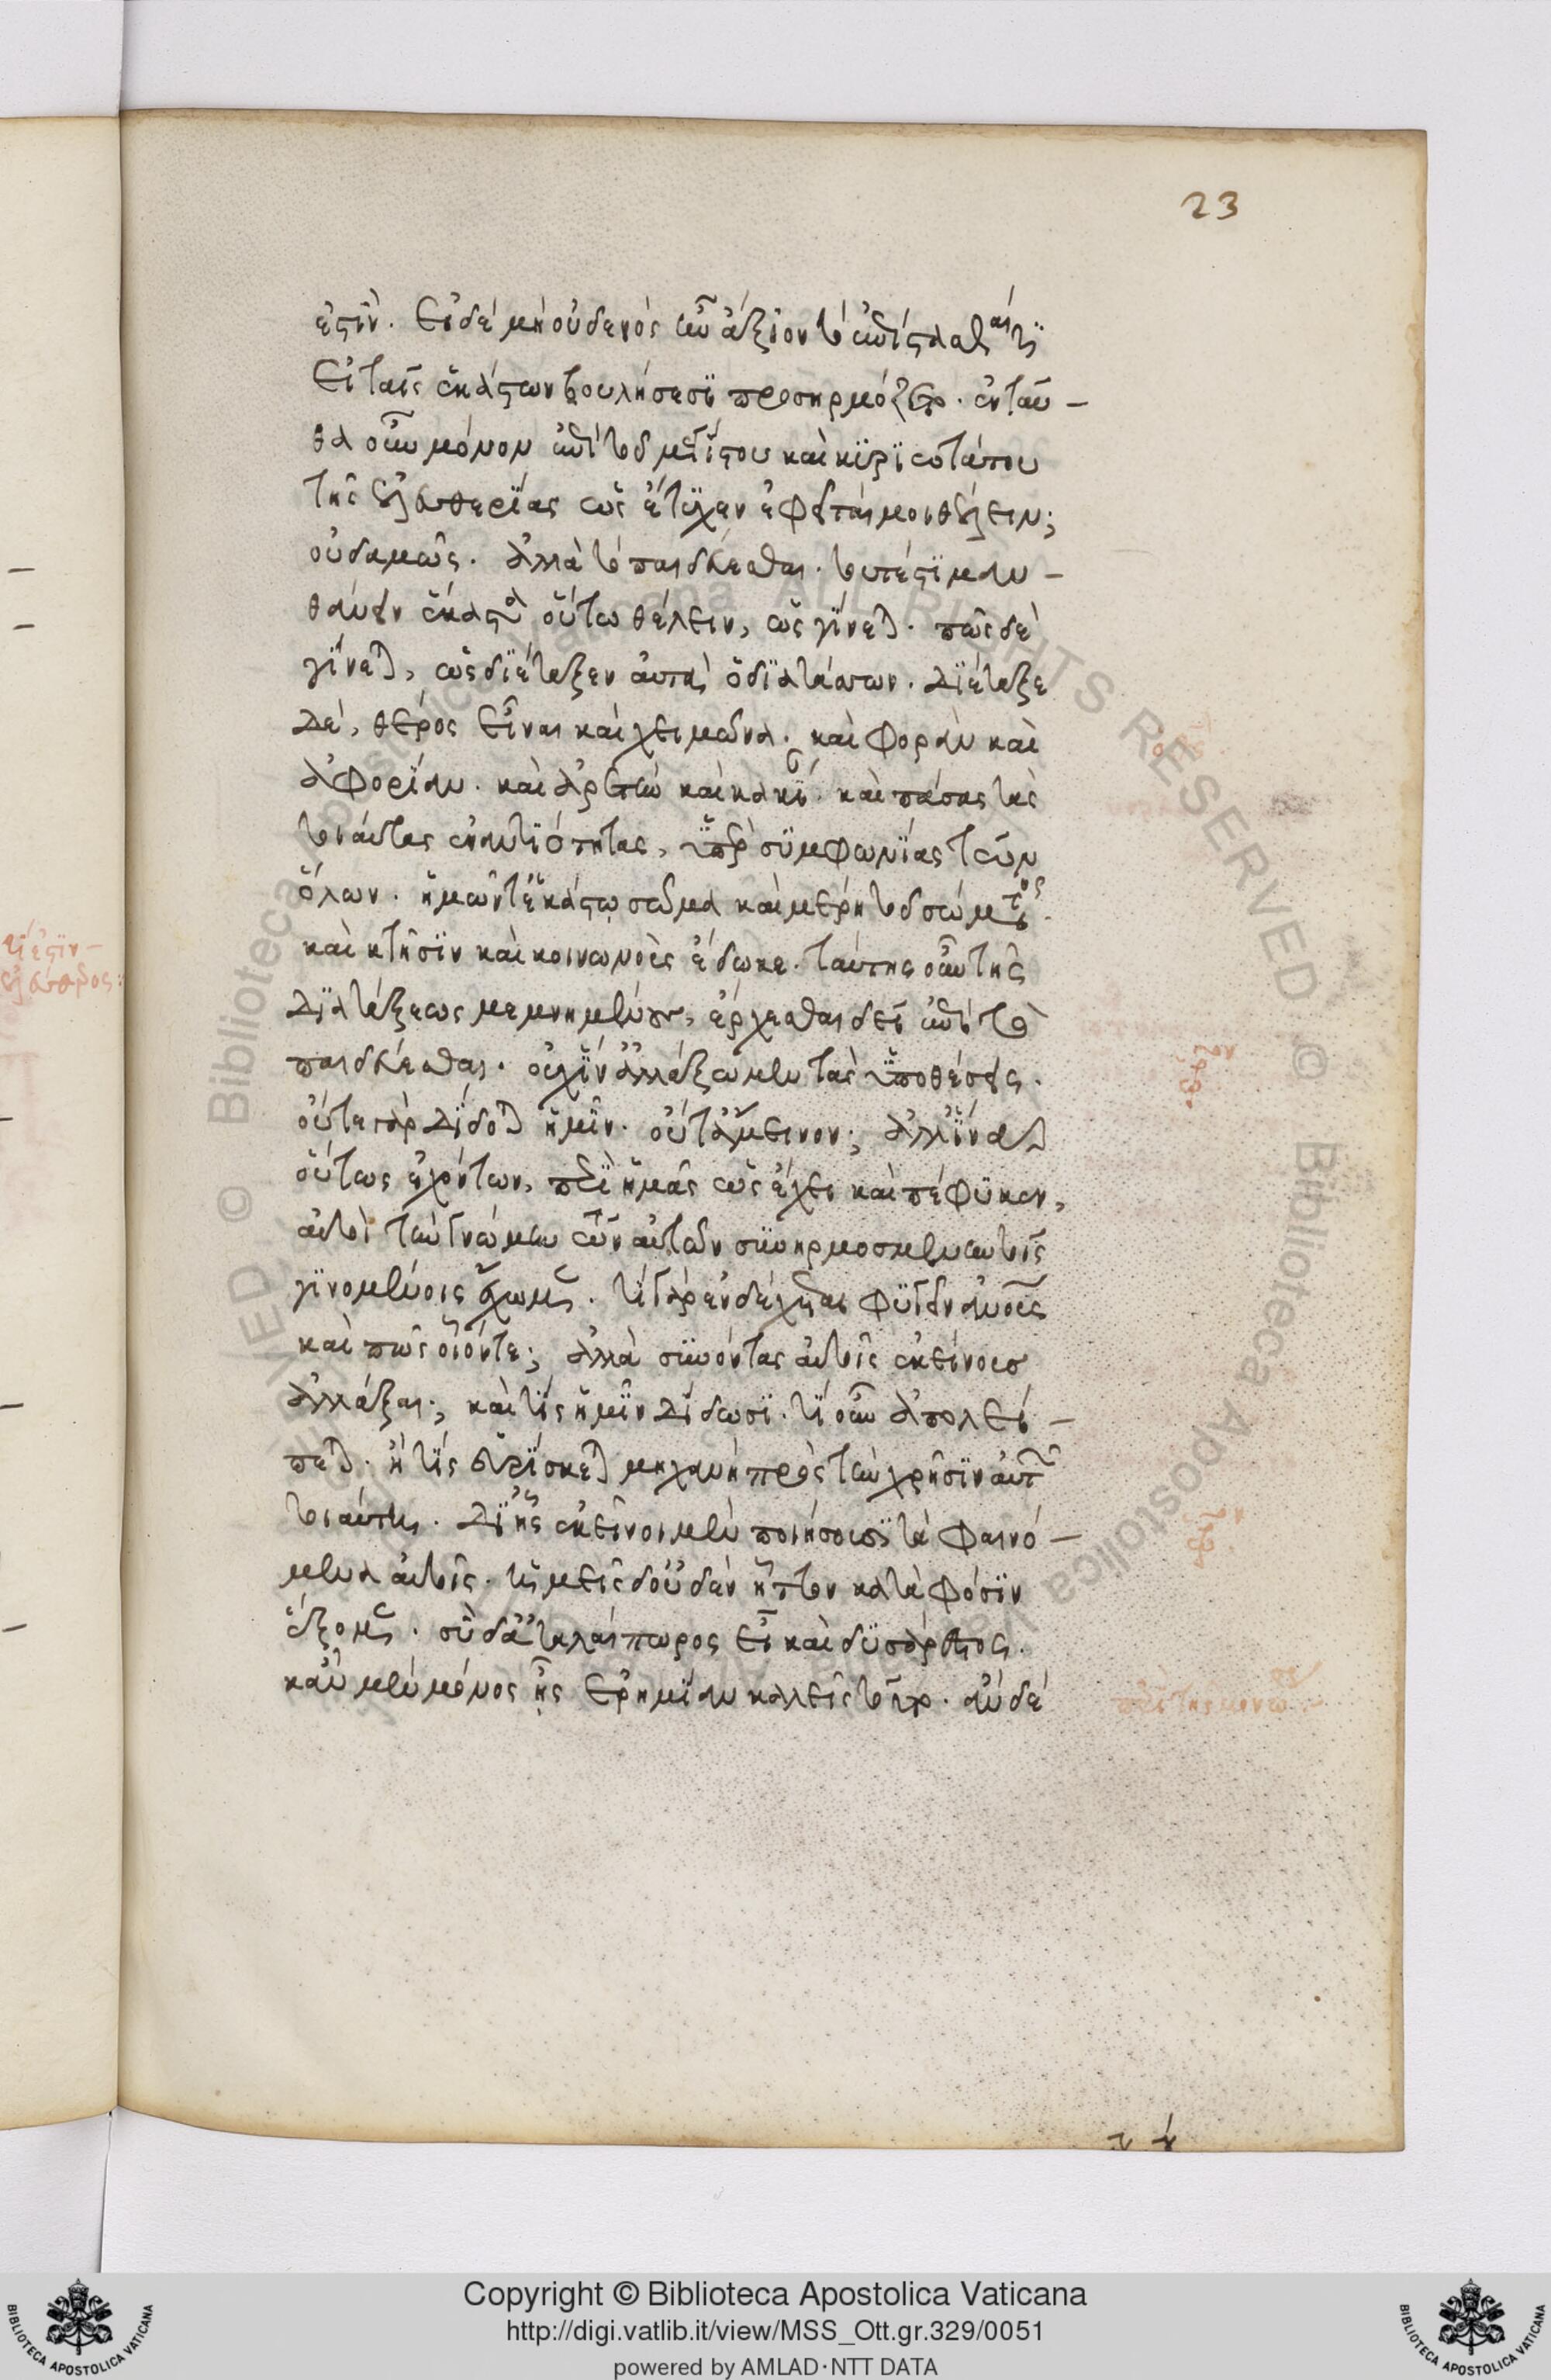 23
ἐστὶν. Εἰ δὲ μὴ οὐδενὸς ἦν ἄξιον τὸ ἐπίστασθαί τι
Εἰ ταῖς ἑκάστων βουλήσεσι προσηρμόζετο. ἐνταῦ-
θα οὖν μόνον ἐπὶ τοῦ μεγίστου καὶ κυριωτάτου
τῆς ἐλευθερίας ὡς ἔτυχεν ἐφεῖταί μοι θέλειν;
οὐδαμῶς. ἀλλὰ τὸ παιδεύεσθαι. τουτέστι μαν-
θάνειν ἕκαστα οὕτω θέλειν, ὡς γίνεται. πῶς δὲ
γίνεται, ὡς διέταξεν αὐτὰ ὁ διατάσσων. Διέταξε
Δὲ, θέρος εἶναι καὶ χειμῶνα. καὶ φορὰν καὶ
ἀφορίαν. καὶ ἀρετὴν καὶ κακίαν. καὶ πάσας τὰς
τοιαύτας ἐναντιότητας, ὑπὲρ συμφωνίας τῶν
ὅλων. ἡμῶν τε ἑκάστῳ σῶμα καὶ μέρη τοῦ σώματος.
καὶ κτῆσιν καὶ κοινωνοὺς ἔδωκε. ταύτης οὖν τῆς
Διατάξεως μεμνημένους, ἔρχεσθαι δεῖ ἐπὶ τὸ
παιδεύεσθαι. οὐχ ἵν' ἀλλάξωμεν τὰς ὑποθέσεις.
οὔτε γὰρ δίδοται ἡμῖν. οὔτ' ἄμεινον; ἀλλ' ἵνα
οὕτως ἐχόντων, περὶ ἡμᾶς ὡς ἔχει καὶ πέφυκεν,
αὐτοὶ τὴν γνώμην τὴν αὐτῶν συνηρμοσμένην τοῖς
γινομένοις ἔχωμεν. τί γὰρ ἐνδέχεται φυγεῖν ἀνθρώπους
καὶ πῶς οἷόν τε; ἀλλὰ συνόντας αὐτοῖς ἐκείνους
ἀλλάξαι; καὶ τίς ἡμῖν δίδωσι. τί οὖν ἀπολεί-
πεται. ἢ τίς εὑρίσκεται μηχανὴ πρὸς τὴν χρῆσιν αὐτῶν
τοιαύτη. Δι' ἧς ἐκεῖνοι μὲν ποιήσουσι τὰ φαινό-
μενα αὐτοῖς. ἡμεῖς δ' οὐδὲν ἧττον κατὰ φύσιν
ἕξομεν. σὺ δ' ἀταλαίπωρος εἶ καὶ δυσάρεστος.
κἂν μὲν μόνος ᾖς ἐρημίαν καλεῖς τοῦτο. ἂν δὲ
τί ἐστιν
ἐλεύθερος:
Copyright © Biblioteca Apostolica Vaticana
http://digi.vatlib.it/view/MSS_Ott.gr.329/0051
powered by AMLAD·NTT DATA